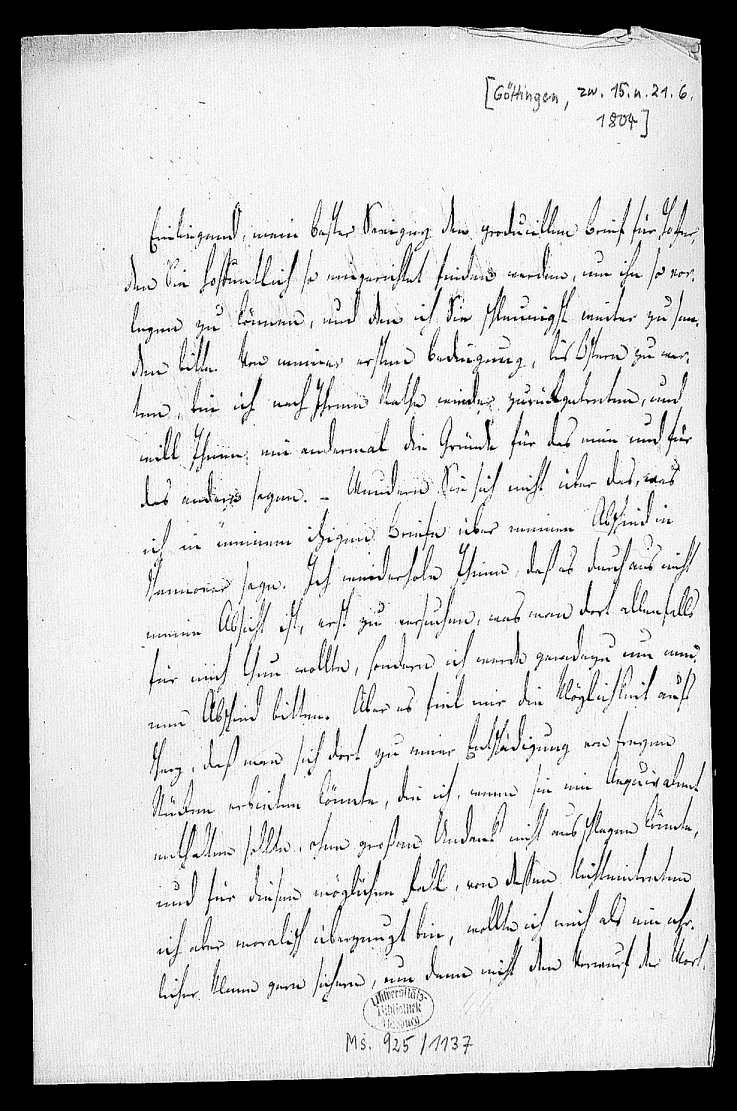 [Göttingen, zw. 15. u. 21. 6.
1804]
Einliegend, mein bester Savigny den producillen Brief für Hofer,
den Sie hoffentlich so eingerichtet finden werden, um ihn so vor-
legen zu können, und den ich Sie schleunigst weiter zu sen-
den bitte. Von meiner ersten Bedingung, bis Ostern zu war-
ten, bin ich nach Ihrem Rathe wieder zurückgetreten, und
will Ihnen ein andermal die Gründe für das eine und für
das andere sagen. – Wundern Sie sich nicht über das, was
ich in meinem itzigen Briefe über meinen Abschied in
Hannover sage. Ich wiederhole Ihnen, daß es durchaus nicht
meine Absicht ist, erst zu versuchen, was man dort allenfalls
für mich thun wollte, sondern ich werde geradezu um mei-
nen Abschied bitten. Aber es fiel mir die Möglichkeit aufs
Herz, daß man sich dort zu einer Entschädigung von freyen
Stücken erbieten könnte, die ich, wenn sie ein Aequivalent
enthalten sollte, ohne großen Undank nicht ausschlagen könnte,
und für diesen möglichen Fall, von dessen Nichteintreten
ich aber moralisch überzeugt bin, wollte ich mich als ein ehr-
licher Mann gern sichern, um dann nicht den Vorwurf der Wort-
Universitäts-
Bibliothek
Marburg
Ms. 925/1137